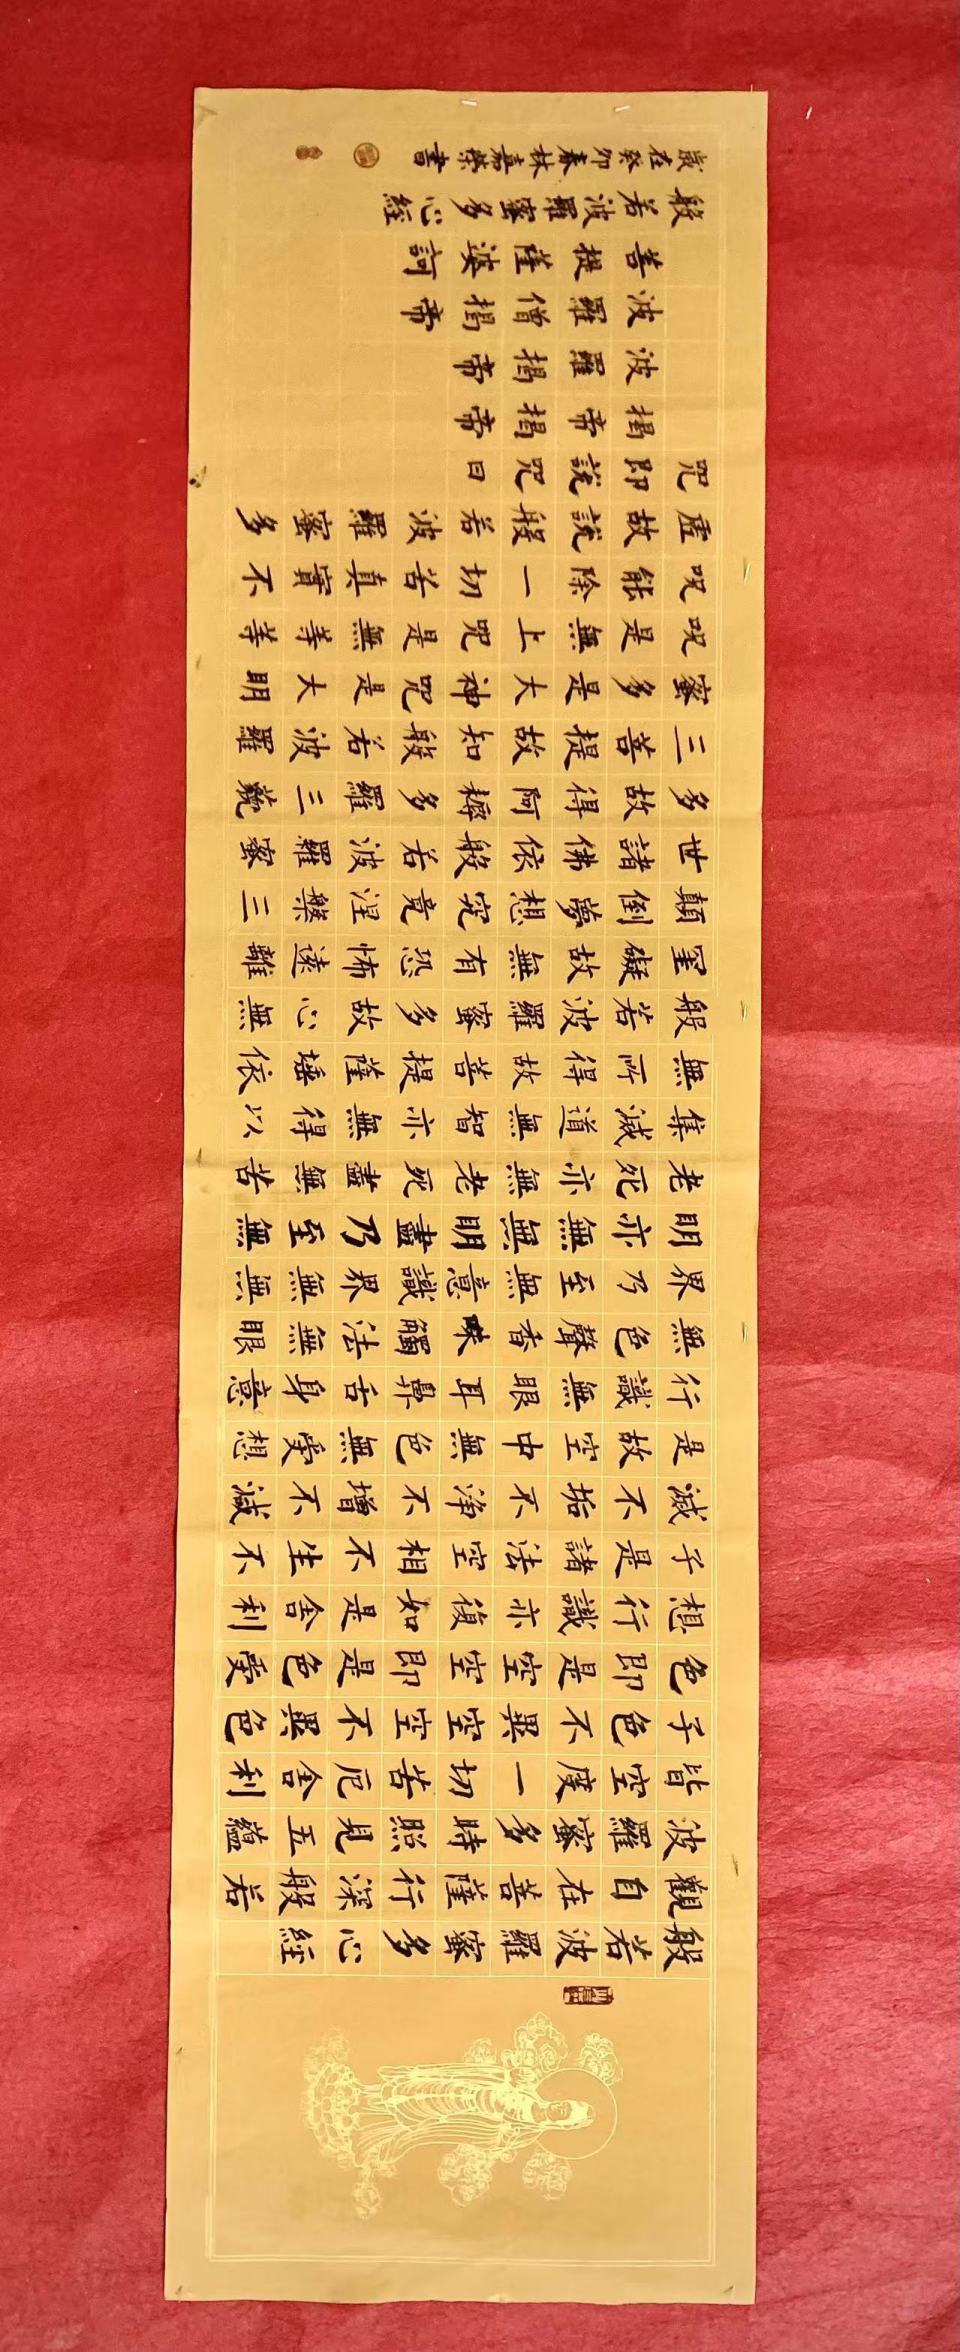 般若波羅蜜多心經
觀自在菩薩行深般若
波羅蜜多時照見五蘊
皆空度一切苦厄舍利
子色不異空空不異色
色即是空空即是色受
想行識亦復如是舍利
子是諸法空相不生不
滅不垢不淨不增不減
是故空中無色無受想
行識無眼耳鼻舌身意
無色聲香味觸法無眼
界乃至無意識界無無
明亦無無明盡乃至無
老死亦無老死盡無苦
集滅道無智亦無得以
無所得故菩提薩埵依
般若波羅蜜多故心無
罣礙故無有恐怖遠離
顛倒夢想究竟涅槃三
世諸佛依般若波羅蜜
多故得阿耨多羅三藐
三菩提故知般若波羅
蜜多是大神咒是大明
呪是無上咒是無等等
呪能除一切苦真實不
虛故說般若波羅蜜多
咒即說咒曰
揭帝揭帝
波羅揭帝
波羅僧揭帝
菩提薩婆訶
般若波羅蜜多心經
歲在癸卯春林嘉榮書